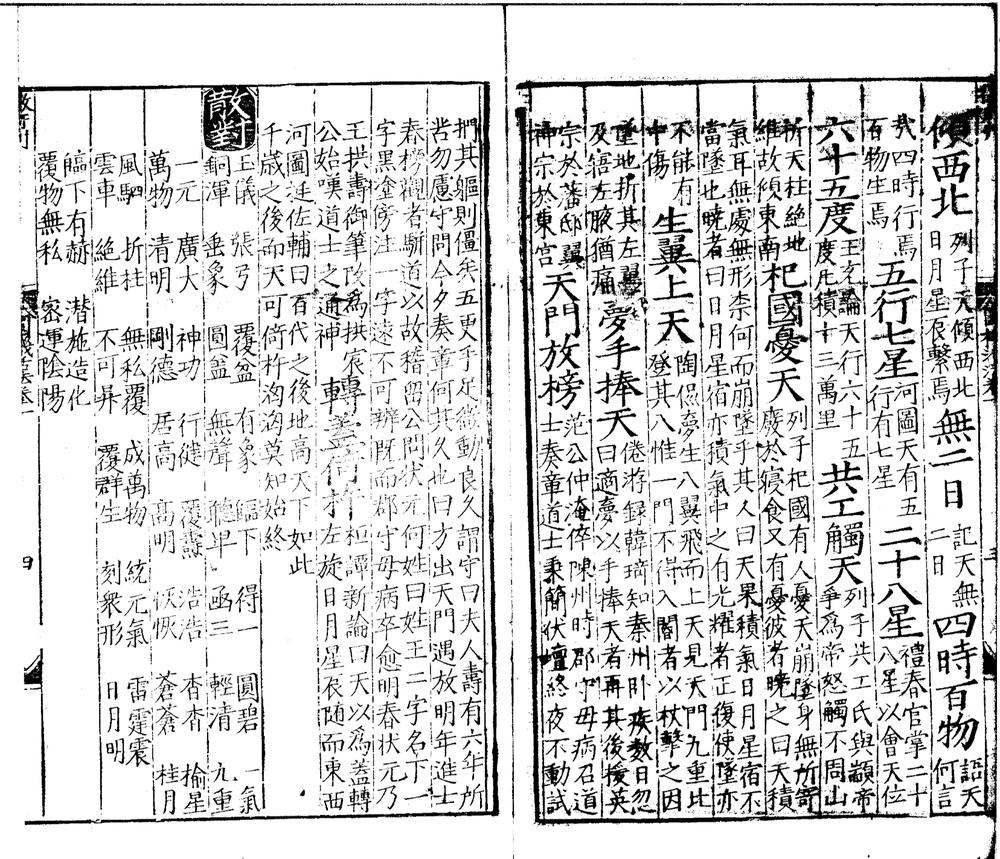 傾西北 列子天傾西北日月星辰繫焉 無二日 記天無二日 四時百物 語天何言
哉四時行焉百物生焉 五行七星 河圖天有五行有七星 二十八星 禮春官掌二十八星以會天位
六十五度 王玄論天行六十五度度凡積十三萬里 共工觸天 列子共工氏與顓帝爭爲帝怒觸不周山
折天柱絶地維故傾東南 杞國憂天 列子杞國有人憂天崩墜身無所寄廢於寢食又有憂彼者曉之曰天積
氣耳無處無形柰何而崩墜乎其人曰天果積氣日月星宿不當墜也曉者曰日月星宿亦積氣中之有光耀者正復使墜亦
不能有中傷 生翼上天 陶侃夢生八翼飛而上天見天門九重比登其八惟一門不得入閽者以杖擊之因
墜地折其左翼及寤左腋猶痛 夢手捧天 倦游録韓琦知秦州卧疾數日忽曰適夢以手捧天者再其後援英
宗於藩邸翼神宗於東宫 天門放榜 范公仲淹倅陳州時郡守母病召道士奏章道士秉簡伏壇終夜不動試
捫其軀則僵矣五更手足微動良久謂守曰夫人壽有六年所
苦勿慮守問今夕奏章何其久也曰方出天門遇放明年進士
春榜觀者駢道以故稽留公問状元何姓曰姓王二字名下一
字黑塗旁注一字遠不可辨既而郡守母病卒愈明春状元乃
王拱壽御筆改爲拱宸公始嘆道士之通神 轉蓋倚杵 桓譚新論曰天以爲蓋轉左旋日月星辰随而東西
河圖廷佐輔曰百代之後地高天下如此
千歳之後而天可倚杵洶洶莫知始終
散對
玉儀 張弓 覆盆 有象 臨下 得一 圓碧 一氣
銅渾 垂象 圓蓋 無聲 聽卑 函三 輕清 九重
一元 廣大 神功 行健 覆燾 浩浩 杳杳 榆星
萬物 清明 剛德 居高 高明 恢恢 蒼蒼 桂月
風駟 折柱 無私覆 成萬物 統元氣 雷霆震
雲車 絶維 不可昇 覆群生 刻衆形 日月明
臨下有赫 潜施造化
覆物無私 密運陰陽
四